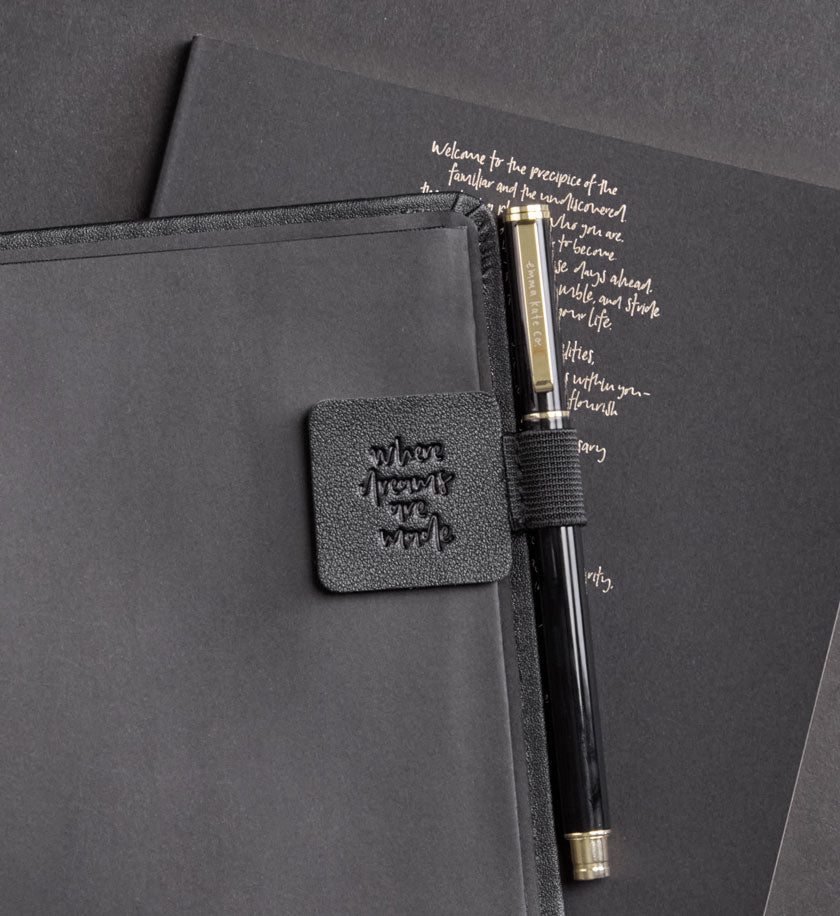 Welcome to the precipice of the
familiar and the undiscovered.
who you are.
to become
days ahead.
and stride
your life.
within you—
flourish
emma kate co.
where
dreams
are
made